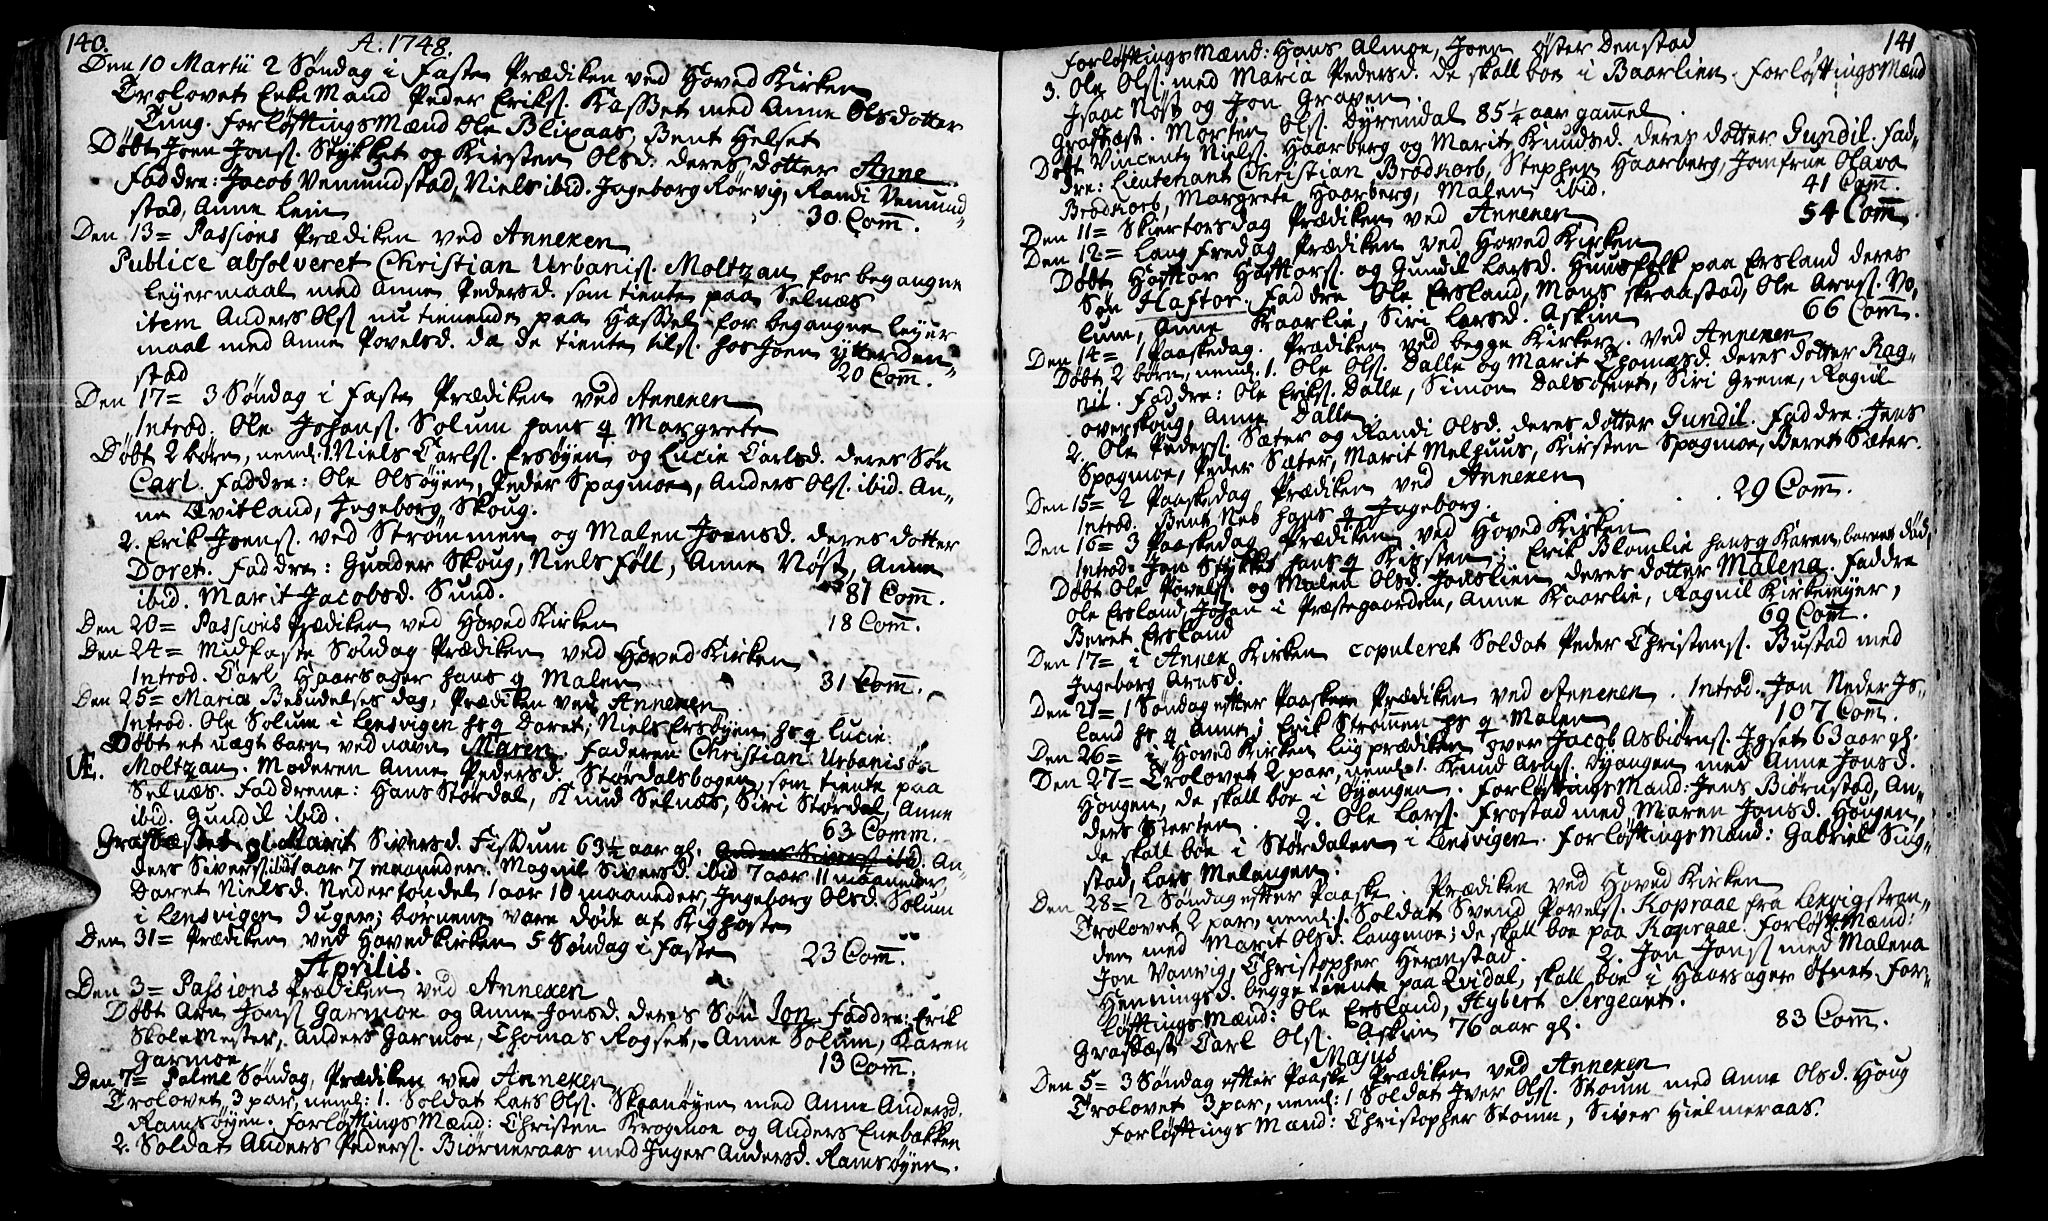 140.
A. 1748.
Den 10 Martii 2 Søndag i Faste Prædiken ved Hoved Kirken
Trolovet Enke Mand Peder Eriks. Kasset med Anne Olsdotter
Tung. Forløftings Mænd Ole Blixaas, Bent Helset
Døbt Joen Jons. Stykket og Kirsten Olsd. deres dotter Anne
Faddre: Jacob Vemundstad, Niels ibid. Ingeborg Rørvig, Randi Vemund-
stad, Anne Lein 30 Comm.
Den 13= Passions Prædiken ved Annexen
Publice absolveret Christian Urbanis. Moltzan for begangne
Leyermaal med Anne Pedersd. som tiente paa Selnæs
item Anders Ols. nu tienende paa Hassel for begangne leyer
maal med Anne Povelsd. da de tiente tils. hos Joen ytter Den-
stad 20 Comm.
Den 17= 3 Søndag i Faste Prædiken ved Annexen
Introd. Ole Johans. Solum hans q Margrete
Døbt 2 børn, neml: 1. Niels Carls. Ersøyen og Lucie Carlsd. deres Søn
Carl. Faddre: Ole Olsøyen, Peder Spagmoe, Anders Ols. ibid. An-
ne Qvitland, Ingeborg Skoug.
2. Erik Joens. ved Strømmen og Malen Joensd. deres dotter
Doret. Faddre: Gunder Skoug, Niels Föll, Anne Nøst, Anne
ibid. Marit Jacobsd. Sund. 81 Comm.
Den 20= Passions Prædiken ved Hoved Kirken 18 Comm.
Den 24= Midfaste Søndag Prædiken ved Hoved Kirken
Introd. Carl Haarsager hans q Malen 31 Comm.
Den 25= Mariæ Bebudelses dag, Prædiken ved Annexen
Introd. Ole Solum i Lensvigen hs q Doret, Niels Ersøyen hs q Lucie.
Døbt et uægt barn ved navn Maren. Faderen Christian Urbanisøn
UÆ. Moltzan. Moderen Anne Pedersd. Størdalsbogen, som tiente paa
Selnæs. Faddrene: Hans Størdal, Knud Selnæs, Siri Størdal, Anne
ibid. Gundil ibid. 63 Comm.
Græsfæstet Marit Siversd. Fissum 63½ aar gl. Anders Sivers. ibid. An-
ders Sivers. ibid 1 aar 7 maaneder. Magnil Siversd. ibid 7 aar 11 maaneder,
Doret Nielsd. Nedertøndel 1 aar 10 maaneder, Ingeborg Olsd. Solum
i Lensvigen 9 uger; børnene vare døde af Kighoste
Den 31= Prædiken ved Hovedkirken 5 Søndag i Faste 23 Comm.
Aprilis.
Den 3= Passions Prædiken ved Annexen
Døbt Arn Jons. Garmoe og Anne Jonsd. deres Søn Jon. Faddre: Erik
SkoleMester, Anders Garmoe, Thomas Rogset, Anne Solum, Karen
Garmoe 13 Comm.
Den 7= Palme Søndag, Prædiken ved Annexen
Trolovet 3 par, neml: 1. Soldat Lars Ols. Skaanøyen med Anne Andersd.
Ramsøyen. Forløftings Mænd: Christen Krogmoe og Anders Enebakken
2. Soldat Anders Peders. Biørneraas med Inger Andersd. Ramsøyen.
141
Forløftings Mænd: Hans Almoe, Joen øster Denstad
3. Ole Ols. med Maria Pedersd. de skall boe i Baarlien. Forløftings Mænd
Isaac Nøst og Jon Graven.
Græsfæst. Morten Ols. Dyrendal 85¼ aar gammel.
Døbt Vincentz Niels. Haarberg og Marit Knudsd. deres dotter Gundil. Fad-
dre: Lieutenant Christian Brodkorb, Stephen Haarberg, Jomfrue Olava
Brodkorb, Margrete Haarberg, Malen ibid. 41 Comm.
Den 11= Skiertorsdag Prædiken ved Annexen 54 Comm.
Den 12= Lang Fredag Prædiken ved Hoved Kirken
Døbt Hafftor Hafftors. og Gundil Larsd. Huusfolk paa Ersland deres
Søn Haftor. Faddre Ole Ersland, Mons Skraastad, Ole Arns. Vo-
lum, Anne Kaarlie, Siri Larsd. Askim 66 Comm.
Den 14= 1 Paaskedag. Prædiken ved begge Kirker. ved Annexen
Døbt 2 børn, neml: 1. Ole Ols. Dalle og Marit Thomæsd. deres dotter Rag-
nil. Faddre: Ole Eriks. Dalle, Simon Dalsøfnet, Siri Grene, Ragnil
overskoug, Anne Dalle.
2. Ole Peders. Sæter og Randi Olsd. deres dotter Gundil. Faddre: Jens
Spagmoe, Peder Sæter, Marit Melhuus, Kirsten Spagmoe, Beret Sæter.
Den 15= 2 Paaskedag Prædiken ved Annexen 29 Comm.
Introd. Bent Nes hans q Ingeborg.
Den 16= 3 Paaskedag Prædiken ved Hoved Kirken
Introd. Jon Stykket hans q Kirsten; Erik Blomlie hans q Karen, barnet død.
Døbt Ole Povels. og Malen Olsd. Jonslien deres dotter Malena. Faddre
Ole Ersland, Johan i Præstegaarden, Anne Kaarlie, Ragnil Kirkemyer,
Beret Ersland 69 Comm.
Den 17= i Annex Kirken copuleret Soldat Peder Christens. Bustad med
Ingeborg Arnsd.
Den 21= 1 Søndag efter Paasken Prædiken ved Annexen. Introd. Jon Neder Is-
land hs q Anne; Erik Strømmen hs q Malen 107 Comm.
Den 26= i Hoved Kirken liigprædiken over Jacob Asbiørns. Igset 63 aar gl.
Den 27= Trolovet 2 par, neml: 1. Knud Arns. Øyangen med Anne Jonsd.
Hougen, de skall boe i Øyangen. Forløftings Mænd: Jens Biørnstad, An-
ders Sterten. 2. Ole Lars. Frostad med Maren Jonsd. Hougen,
de skall boe i Størdalen i Lensvigen. Forløftings Mænd: Gabriel Siig-
stad, Lars Melangen.
Den 28= 2 Søndag efter Paaske. Prædiken ved Hoved Kirken
Trolovet 2 par, neml: 1. Soldat Svend Povels. Kopraae fra Lexvigstran-
den med Marit Olsd. Langmoe; de skall boe paa Kopraae. Forløft: Mænd:
Jon Vanvig, Christopher Hermstad. 2. Jon Jons. med Malena
Henningsd. begge tiente paa Qvidal, skall boe i Haarsager øfnet. For-
løftings Mænd: Ole Ersland, Hybert Sergeant.
Græsfæst Carl Ols. Askim 76 aar gl. 83 Comm.
Majus
Den 5= 3 Søndag efter Paaske Prædiken ved Annexen
Trolovet 3 par, neml: 1 Soldat Iver Ols. Stoum med Anne Olsd. Houg
Forløftings Mænd: Christopher Stoum, Siver Hielmeraas.